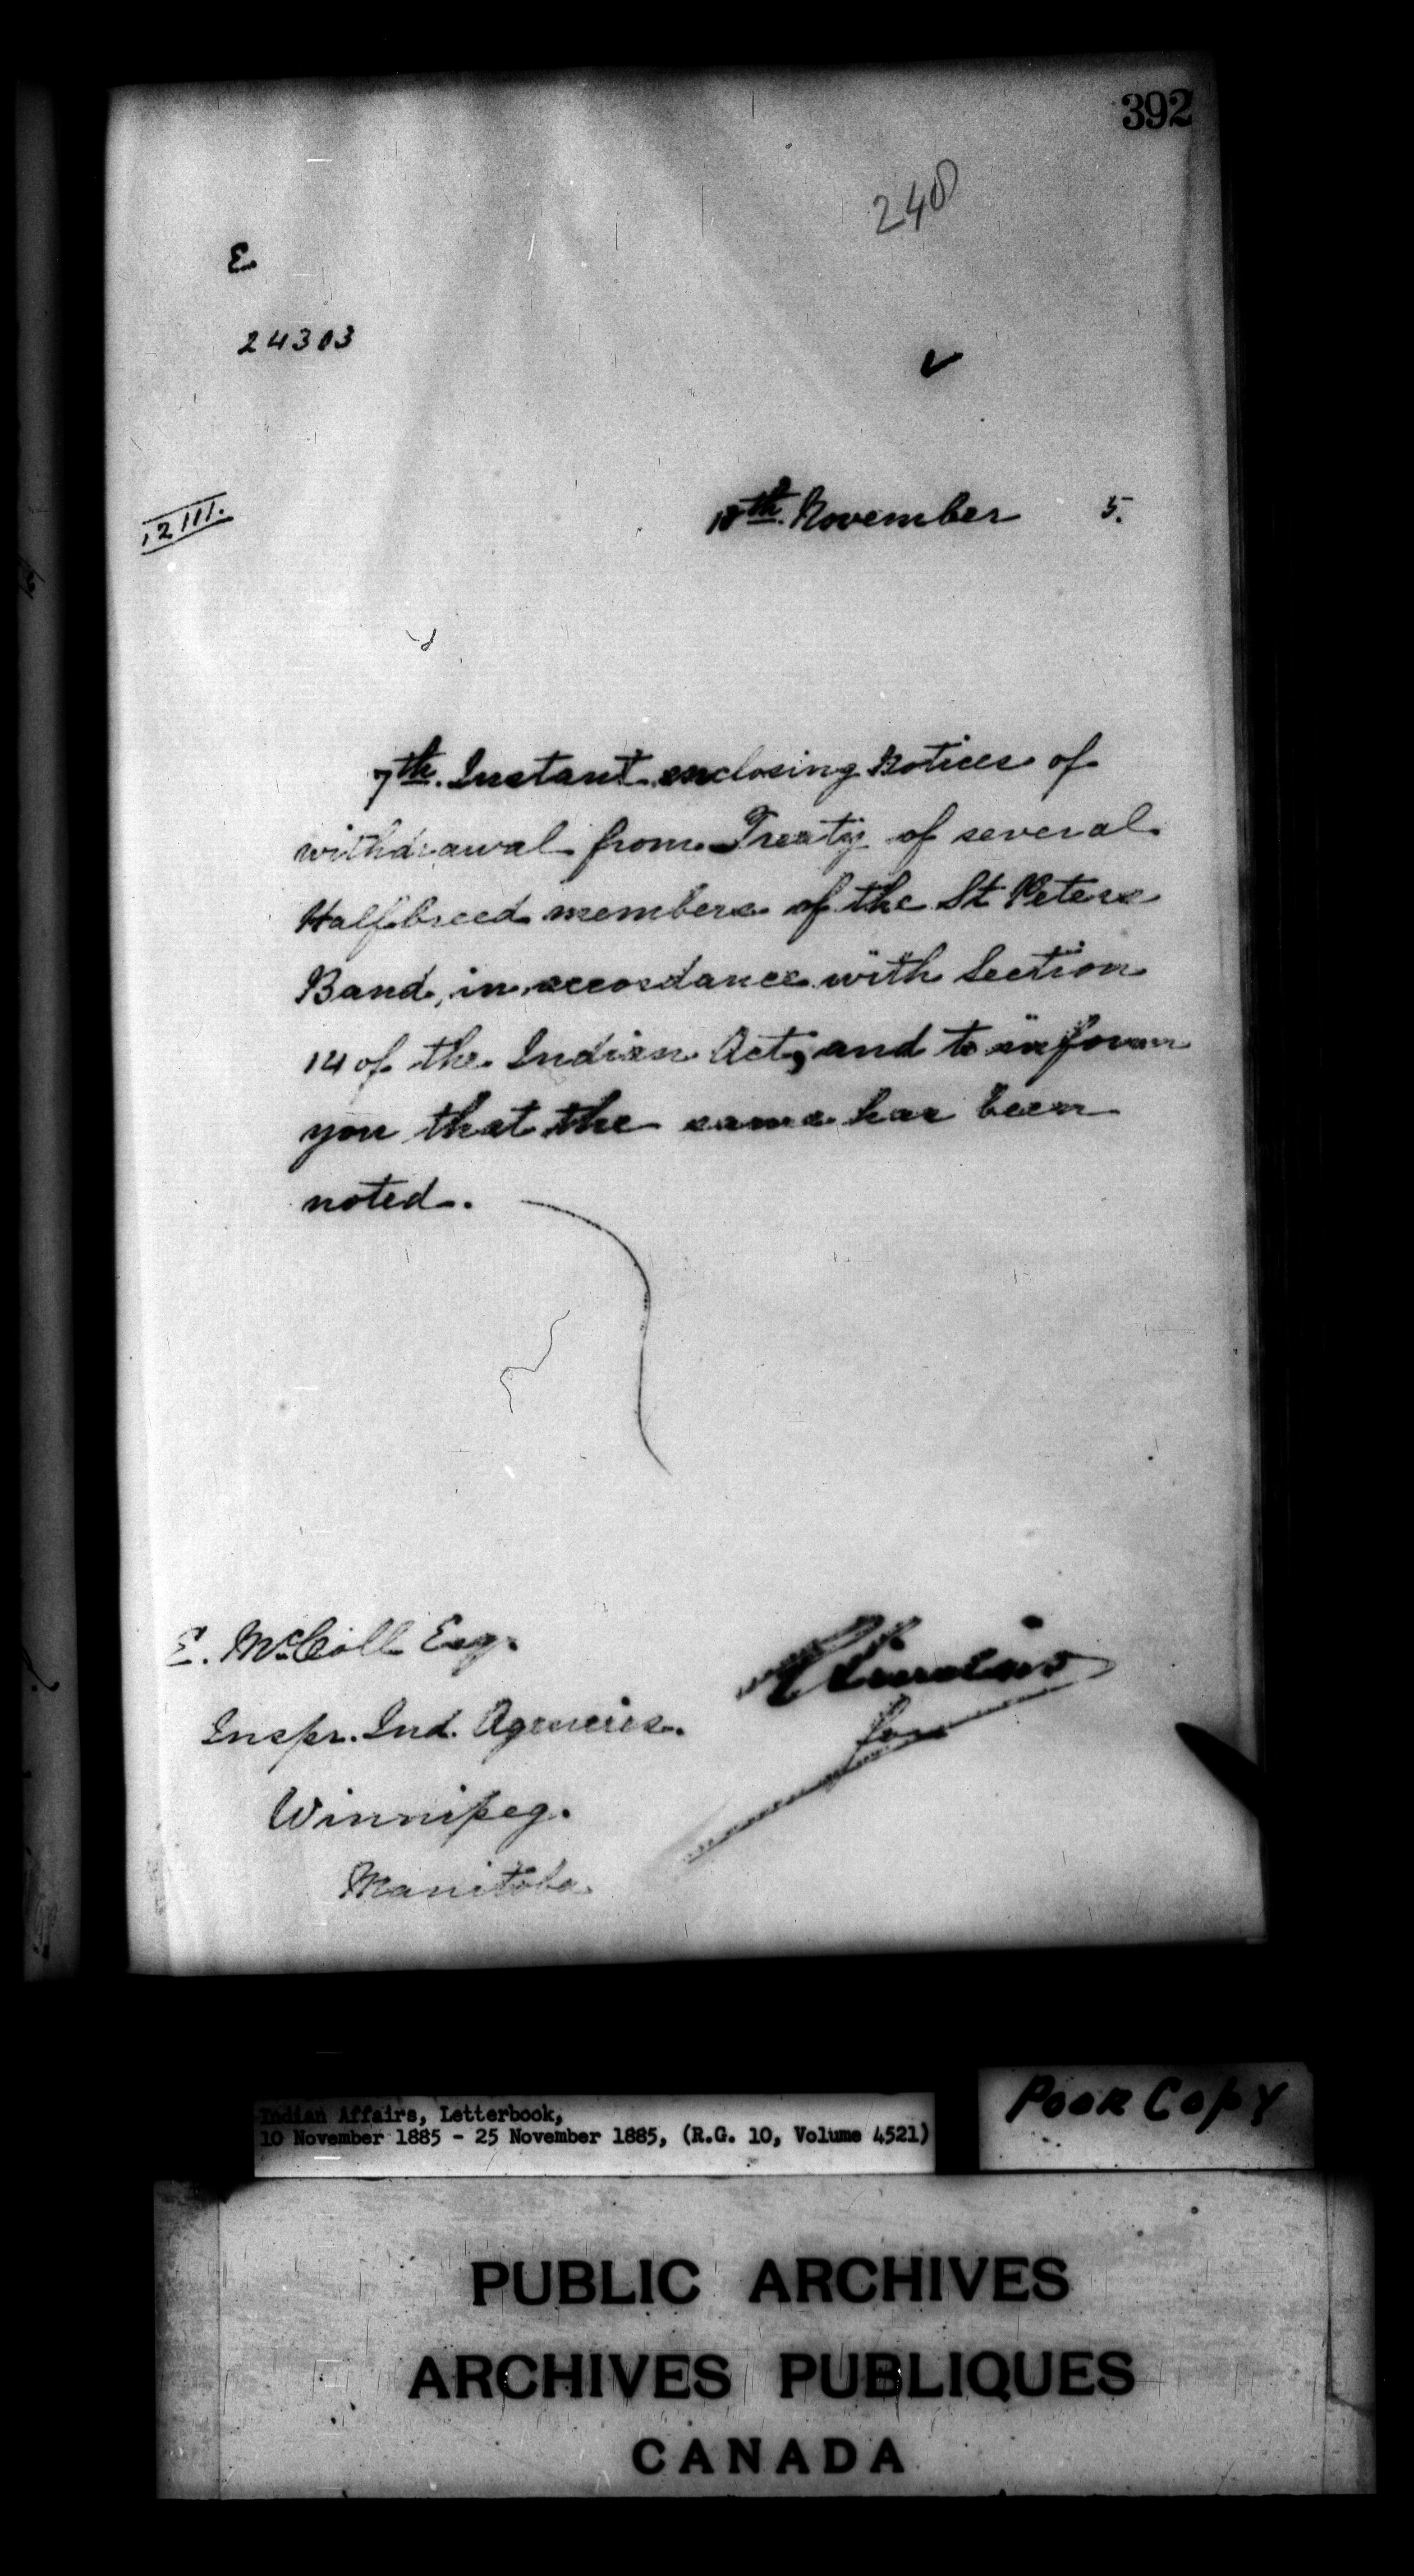 392
248
E
24303
12111.
18th. November 5.
7th. Instant enclosing Notices of
withdrawal from Treaty of several
Halfbreed members of the St Peters
Band, in accordance with Section
14 of the Indian Act, and to inform
you that the same has been
noted.
E. McColl Esq.
Inspr. Ind. Agencies.
for
Winnipeg.
Manitoba
Indian Affairs, Letterbook,
10 November 1885 - 25 November 1885, (R.G. 10, Volume 4521)
POOR COPY
PUBLIC ARCHIVES
ARCHIVES PUBLIQUES
CANADA